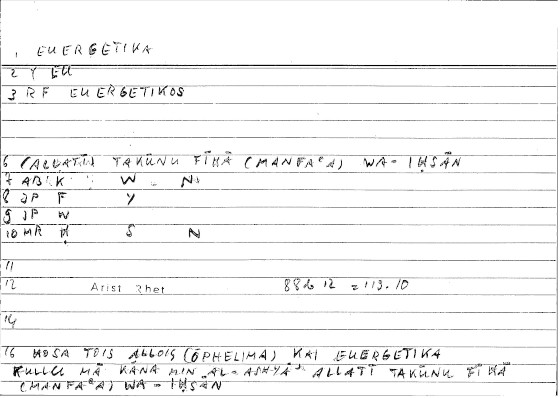 1 EUERGETIKA
2 Y EU
3 RF EUERGETIKOS
6 (ALLATĪ) TAKŪNU FĪHĀ (MANFAᶜA) WA- IḤSĀN
7 ABK W N
8 JP F Y
9 JP W
10 MR Ḥ S N
11
12 Arist Rhet 88b 12 = 113.10
14
16 HOSA TOIS ALLOIS (ŌPHELIMA) KAI EUERGETIKA
KULLU MĀ KĀNA MIN AL-ASHYĀʾ ALLATĪ TAKŪNU FĪHĀ
(MANFAᶜA) WA- IḤSĀN